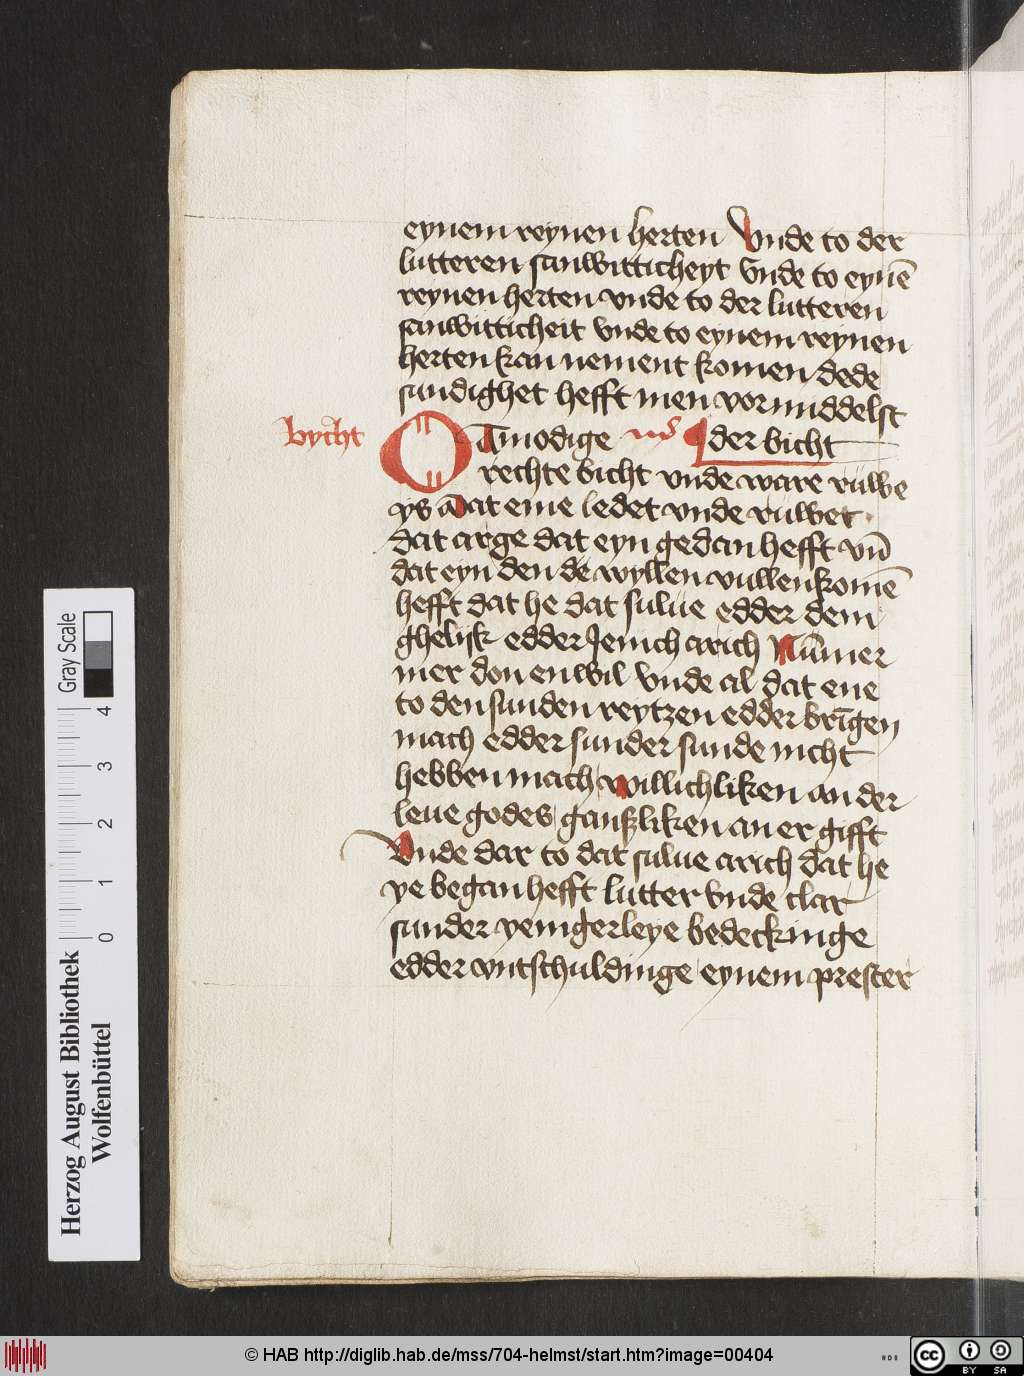 eynem reynen herten Vnde to der
lutteren sanwitticheyt vnde to eynē
reynen herten vnde to der lutteren
sanwitticheit vnde to eynem reynen
herten kan nement komen de de
sundighet hefft men vormiddelst
bycht
Otmodige der bicht
rechte bicht vnde ware rüwe
ys Dat eme ledet vnde rüwet
dat arge dat eyn gedan hefft vn̄
dat eyn den de wyllen vullenkomē
hefft dat he dat sulue edder dem
ghelijk edder Jenich arich Nūmer
mer don en wil vnde al dat ene
to den sunden reytzen edder brīgen
mach edder sunder sunde nicht
hebben mach willichliken an der
leue godes gantzliken an er gifft
Vnde dar to dat sulue arich dat he
ye began hefft lutter vnde clar
sunder yenigerleye bedeckinge
edder vntschuldinge eynem prester
Herzog August Bibliothek
Wolfenbüttel
Gray Scale
0 1 2 3 4
© HAB http://diglib.hab.de/mss/704-helmst/start.htm?image=00404
cc BY SA